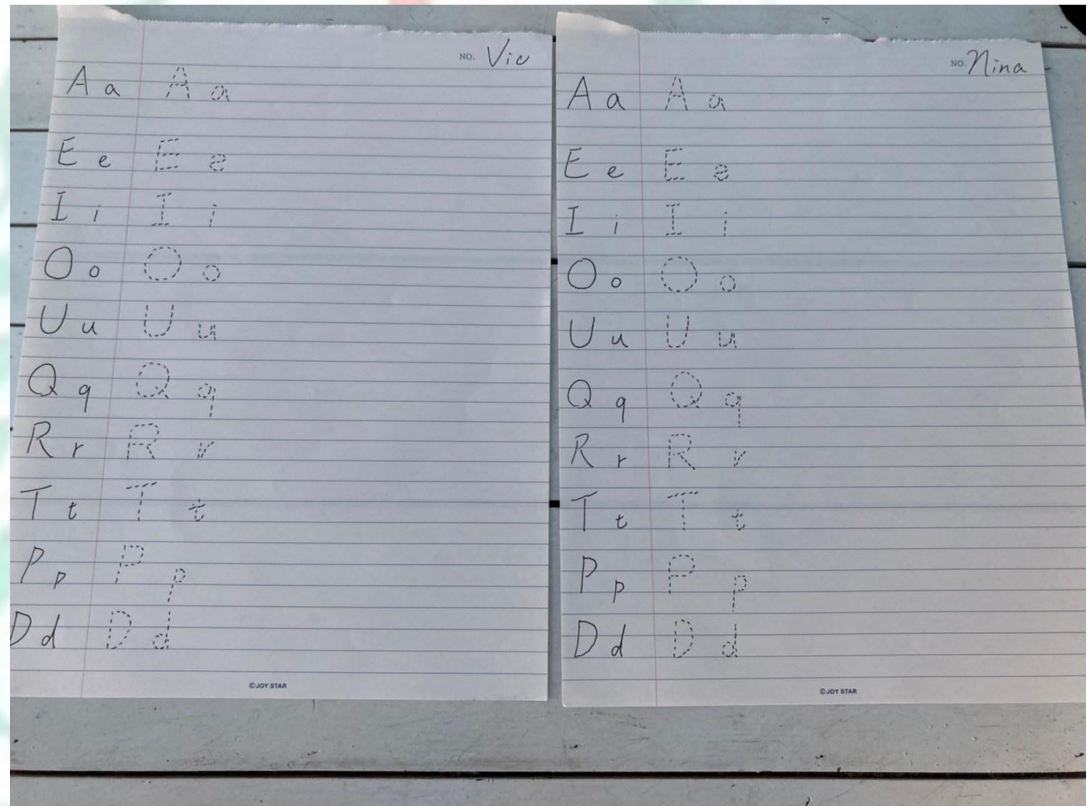 NO. Vic
A a A a
E e E e
I i I i
O o O o
U u U u
Q q Q q
R r R r
T t T t
P p P p
D d D d
©JOY STAR
NO. Nina
A a A a
E e E e
I i I i
O o O o
U u U u
Q q Q q
R r R r
T t T t
P p P p
D d D d
©JOY STAR